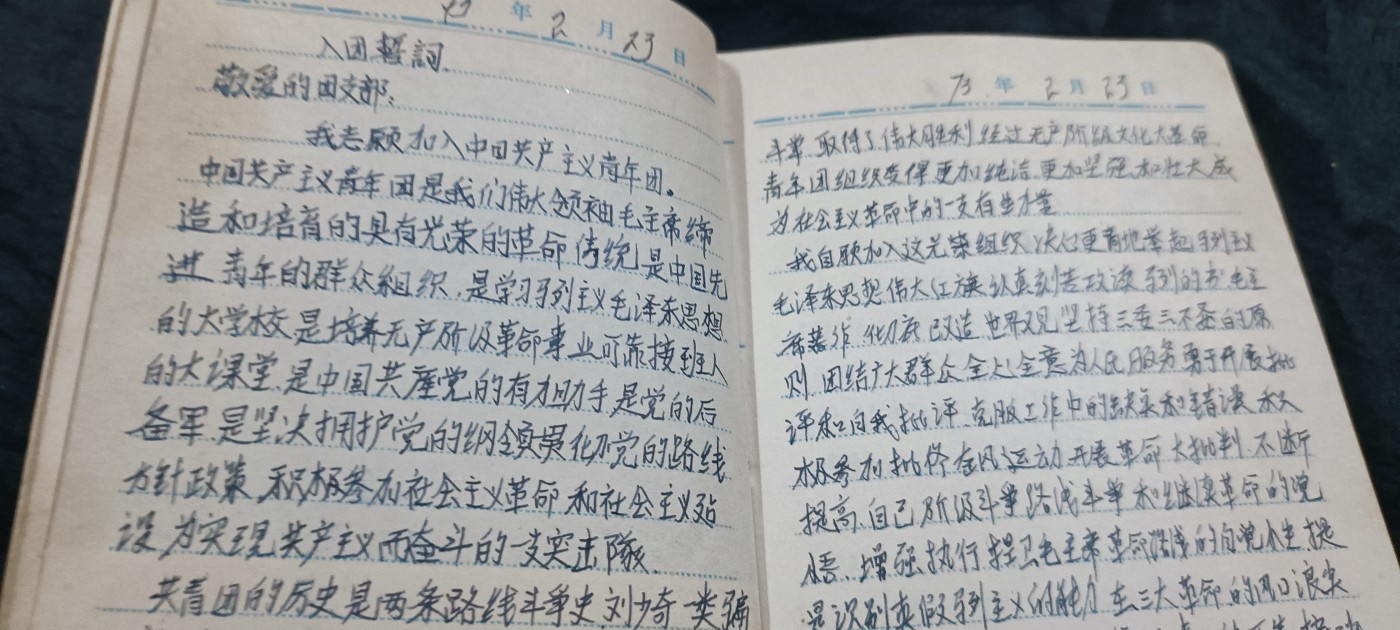 73 年 2 月 23 日
入团誓詞.
敬爱的团支部:
我志愿加入中国共产主义青年团。
中国共产主义青年团是我们伟大领袖毛主席缔
造和培育的具有光荣的革命传统是中国先
进青年的群众组织.是学习马列主义毛泽东思想
的大学校是培养无产阶级革命事业可靠接班人
的大课堂.是中国共産党的有力助手是党的后
备军是坚决拥护党的纲领 党的路线
方针政策 积极参加社会主义革命和社会主义建
设为实现共产主义而奋斗的一支突击隊.
共青团的历史是两条路线斗争史.刘少奇一类骗
73 年 2 月 23 日
取得了伟大胜利 经过无产阶级文化大革命.
青年团组织变得更加纯洁更加坚强和壮大成
为社会主义革命中的一支有生力量
我自愿加入这光荣组织.决心更高地举起马列主义
毛泽东思想伟大红旗认真刻苦攻读马列的书毛主
席著作 彻底改造世界观坚持三要三不要的原
则.团结广大群众全心全意为人民服务勇于开展批
评和自我批评.克服工作中的缺点和错误.积
极参加批修整风运动.开展革命大批判.不断
提高自己阶级斗争路线斗争和继续革命的觉
悟.增强执行捍卫毛主席革命路线的自觉性提
高识别真假马列主义的能力 在三大革命的风口浪尖